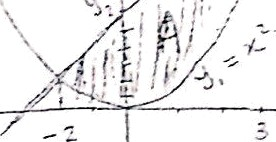 y₂
A
y₁ = x²
-2 3